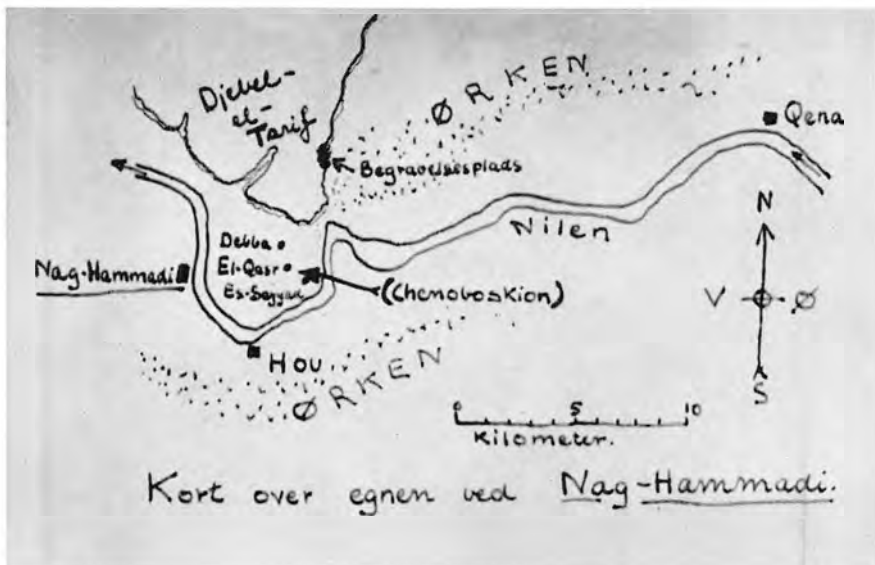 Djebel-
el-
Tarif
ØRKEN
Qena
Begravelsesplads
Nilen
N
V Ø
S
Debba
El-Qasr
Es-Sayyad
Nag-Hammadi
(Chenoboskion)
Hou
ØRKEN
0 5 10
Kilometer.
Kort over egnen ved Nag-Hammadi.